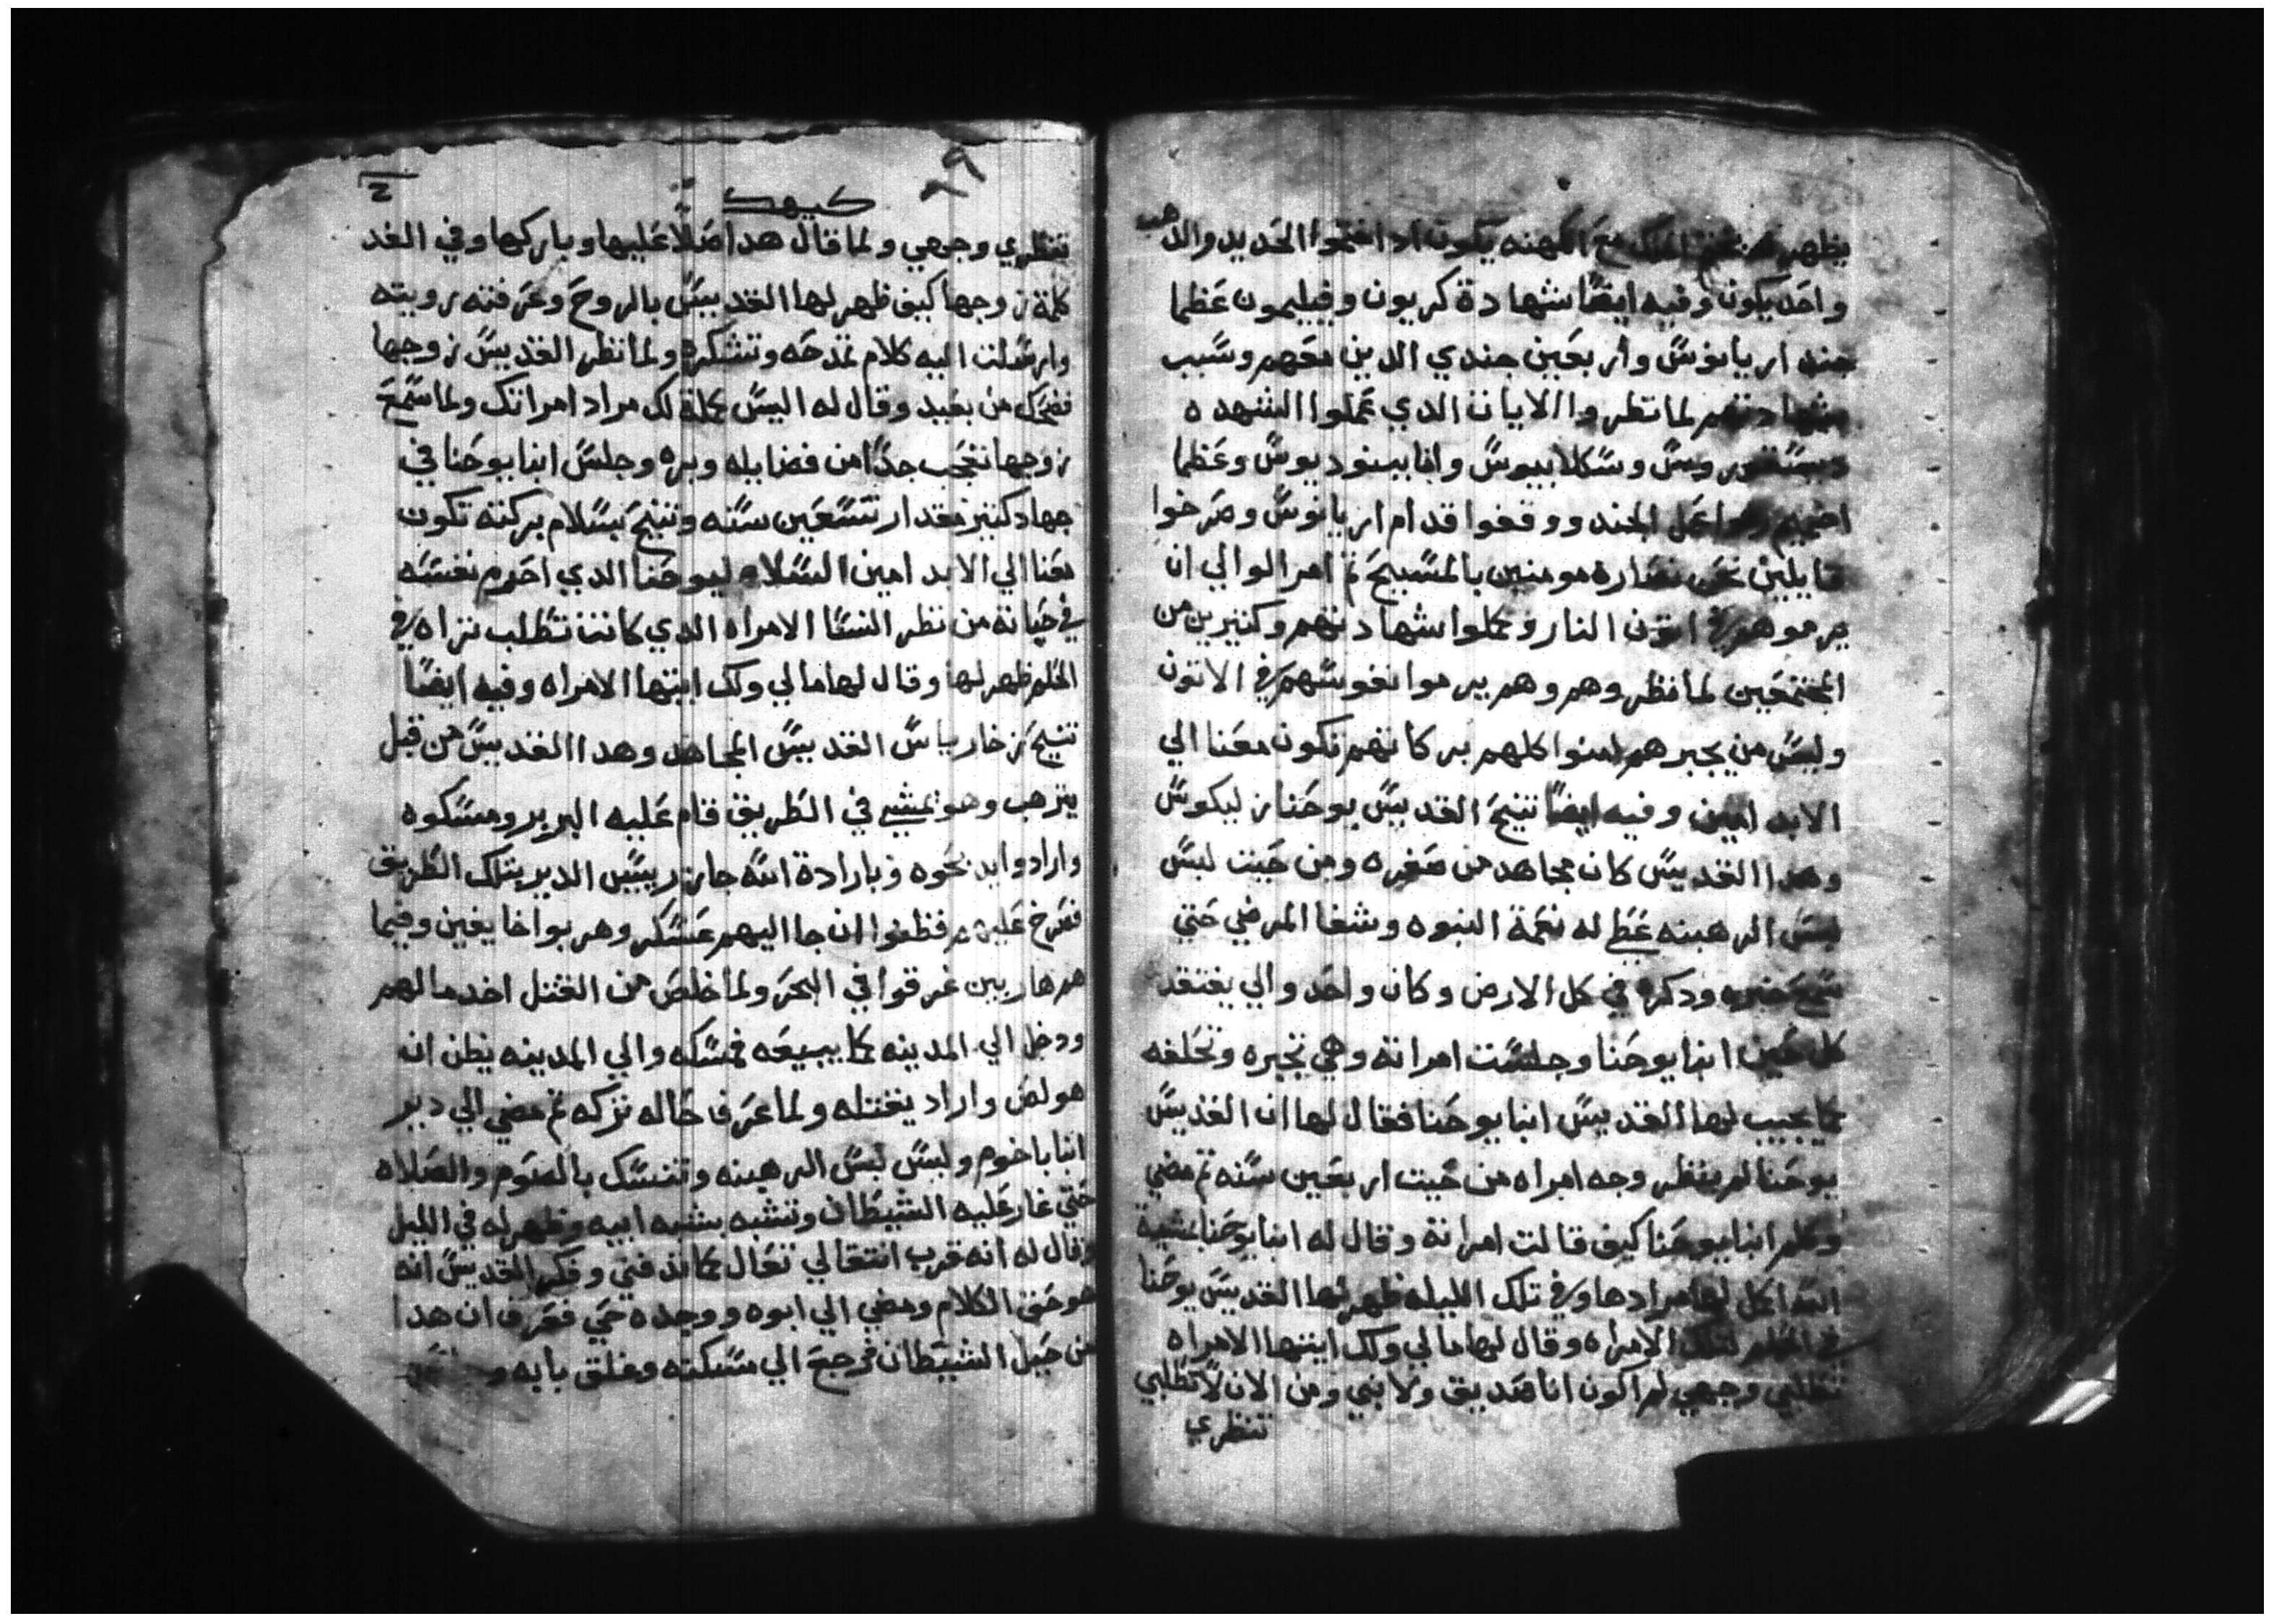 يظهر مع الكهنه يكون اد اجتمعوا الحديد والدهب
واحد يكون وفيه ايضًا شهادة كريون وفيليمون عظما
جند اريانوسً واربعين جندي الدين معهم وسًبب
شهادتهم لما نظروا الايات الدي عملوا الشهده
ديسقوروسً وسًكلابيوسً وانبا بينوديوسً وعظما
اخميم وهوا الجند ووقفوا قدام اريانوسً وصرخوا
قايلين نحن نصاره مومنين بالمسًيح تم امر الوالي ان
يرموهم في اتون النار وكملوا شهادتهم وكتيرين من
المجتمعين لما نظروهم وهم يرموا نفوسًهم في الاتون
وليسً من يجبرهم امنوا كلهم بركاتهم تكون معنا الي
الابد امين وفيه ايضًا تنيح القديسً يوحنا ز ليكوسً
وهدا القديسً كان مجاهد من صغره ومن حيت لبسً
لبسً الرهبنه عَطي له نعمة النبوه وشفا المرضي حتي
سًمع خبره ودكره في كل الارض وكان واحد والي يفتقد
كل حين انبا يوحنا وجلسًت امراته وهي تجبره وتحلفه
كما يجيب لها القديسً انبا يوحنا فقال لها ان القديسً
يوحنا لم ينظر وجه امراه من حيت اربعين سًنه تم مضي
وكلم انبا يوحنا كيف قالت امراته وقال له انبا يوحنا بشية
الله اكمل لها مرادها وفي تلك الليله ظهر لها القديسً يوحنا
في الحلم لتلك الامراه وقال لها ما لي ولك ايتها الامراه
تطلبي وجهي لم اكون انا صديق ولا نبي ومن الان لا تطلبي
تنظري
كيهك
٢٩
تنظري وجهي ولما قال هدا صلًا عليها وباركها وفي الغد
كلمة زوجها كيف ظهر لها القديسً بالروح وعرفته رويته
وارسًلت اليه كلام تمدحه وتشكره ولما نظر القديسً زوجها
فضحك من بعيد وقال له اليسً كملة لك مراد امراتك ولما سًمع
زوجها تعجب جدًا من فضايله وبره وجلسً انبا يوحنا في
جهاد كتير مقدار تسًعين سًنه وتنيح بسًلام بركته تكون
معنا الي الابد امين السًلام ليوحنا الدي احرم نفسًه
في حياته من نظر النسًا الامراه الدي كانت تطلب تراه في
الحلم ظهر لها وقال لها ما لي ولك ايتها الامراه وفيه ايضًا
تنيح ز خارياسً القديسً المجاهد وهدا القديسً من قبل
يترهب وهو يمشي في الطريق قام عليه البربر ومسًكوه
وارادوا يدبحوه وبارادة الله جاز رييسً الدير بتلك الطريق
فصرخ عليهم فظنوا ان جا اليهم عسًكر وهربوا خايفين وفيما
هم هاربين غرقوا في البحر ولما خلص من القتل اخد مالهم
ودخل الي المدينه كما يبيعه فمسًكه والي المدينه يظن ان
هو لص واراد يقتله ولما عرف حاله تركه تم مضي الي دير
انبا باخوم ولبسً لبسً الرهبنه وتنسًك بالصوم والصلاه
حتي غار عليه الشيطان وتشبه بشبه ابيه وظهر له في الليل
وقال له انه قرب انتقالي تعال كما تدفني وفكر القديسً انه
هو حق الكلام ومضي الي ابوه ووجده حي فعرف ان هدا
من حيل الشيطان فرجع الي مسًكنه وغلق بابه